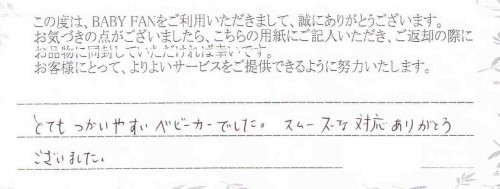 この度は、BABY FANをご利用いただきまして、誠にありがとうございます。
お気づきの点がございましたら、こちらの用紙にご記入いただき、ご返却の際に
お品物に同封していただければ幸いです。
お客様にとって、よりよいサービスをご提供できるように努力いたします。
とても つかいやすい ベビーカーでした。 スムーズな 対応 ありがとう
ございました。